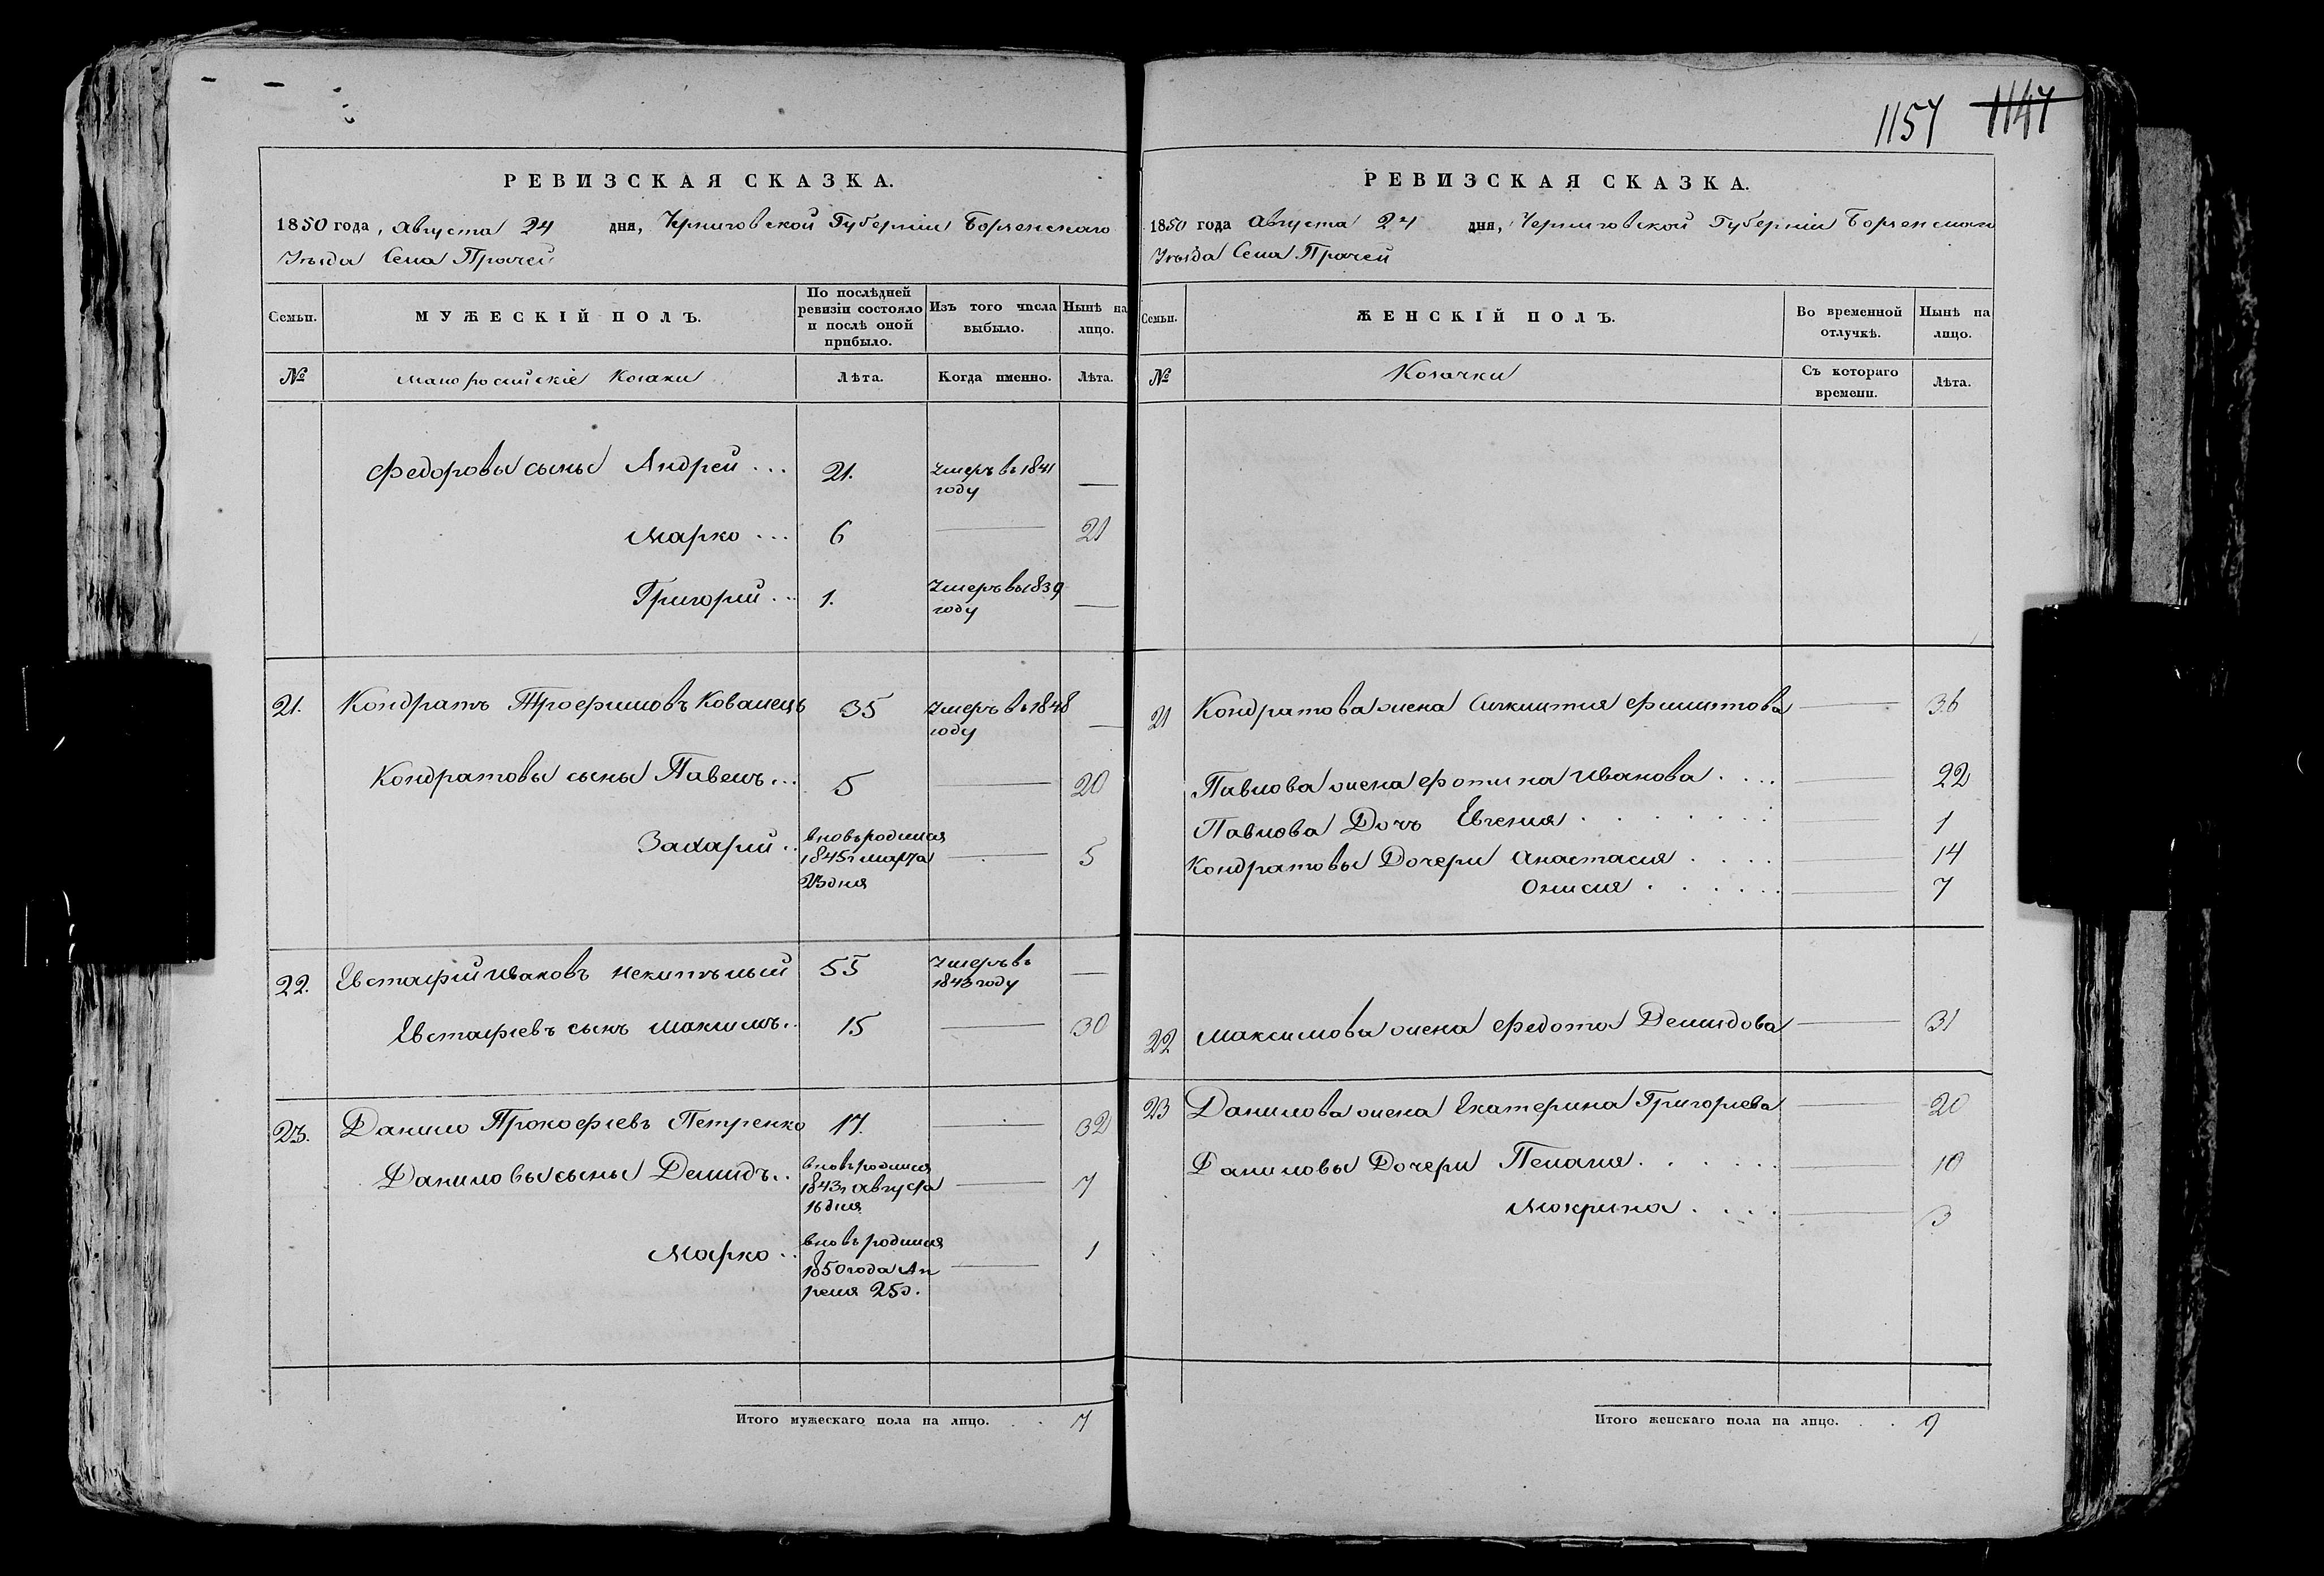 1157 1147
РЕВИЗСКАЯ СКАЗКА.
1850 года, Августа 24 дня, Черниговской Губерніи Борзенскаго
Уѣзда Села Прачей
Семьи.
МУЖЕСКІЙ ПОЛЪ.
По послѣдней
ревизіи состояло
и послѣ оной
прибыло.
Изъ того числа
выбыло.
Нынѣ на
лицо.
№ Малоросійскіе Козаки Лѣта. Когда именно. Лѣта.
Федоровы сыны Андрей ... 21. Умеръ въ 1841
году —
Марко ... 6 — 21
Григорій ... 1. Умеръ въ 1839
году —
21. Кондратъ Трофимовъ Ковалецъ 35 Умеръ въ 1848
году —
Кондратовы сыны Павелъ ... 5 — 20
Захарій .. вновь родился
1845 г марта — 5
23 дня
22. Евстафій Ивановъ 55 Умеръ въ
1843 году —
Евстафіевъ сынъ Максимъ .. 15 — 30
23. Данило Прокофіевъ Петренко 17. — 32
Даниловы сыны Демидъ .. вновь родился
1843 г Августа — 7
16 дня
Марко .. вновь родился
1850 года Ап — 1
реля 25 д.
Итого мужескаго пола на лицо. . . 7
РЕВИЗСКАЯ СКАЗКА.
1850 года Августа 24 дня, Черниговской Губерніи Борзенскаго
Уѣзда Села Прачей
Семьи.
ЖЕНСКІЙ ПОЛЪ.
Во временной
отлучкѣ.
Нынѣ на
лицо.
№ Козачки Съ котораго
времени. Лѣта.
21 Кондратова жена — 36
Павлова жена Фотина Иванова . . . . — 22
Павлова Дочь Евгения . . . . . . . — 1
Кондратовы Дочери Анастасия . . . . — 14
Онисия . . . . . . — 7
22 Максимова жена Федота Демидова — 31
23 Данилова жена Екатерина Григорьева — 20
Даниловы Дочери Пелагия . . . . . . — 10
Мокрина . . . . — 3
Итого женскаго пола на лицо. . . 9